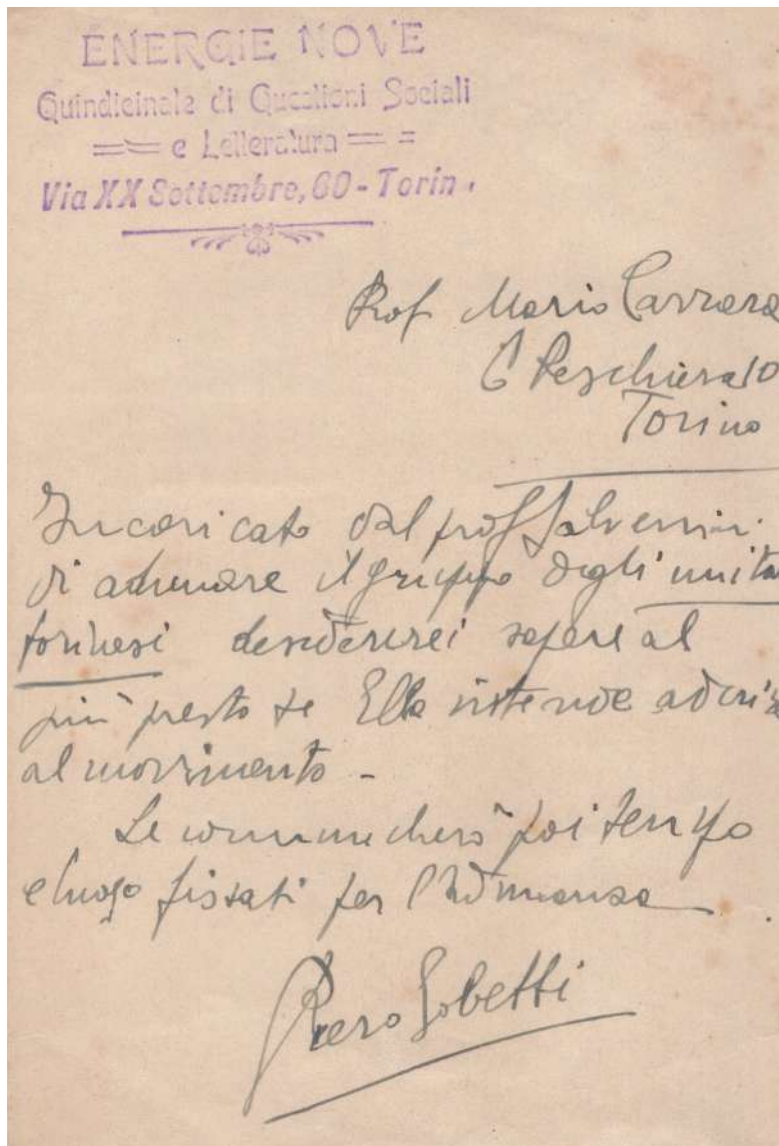 ENERGIE NOVE
Quindicinale di Questioni Sociali
e Letteratura
Via XX Settembre, 60 - Torin
Prof Mario Carrara
C Peschiera 10
Torino
Incaricato dal prof Salvemini
di adunare il gruppo degli unita
torinesi desidererei sapere al
più presto se Ella intende aderire
al movimento -
Le comunicherò poi tempo
e luogo fissati per l'adunanza
Piero Gobetti